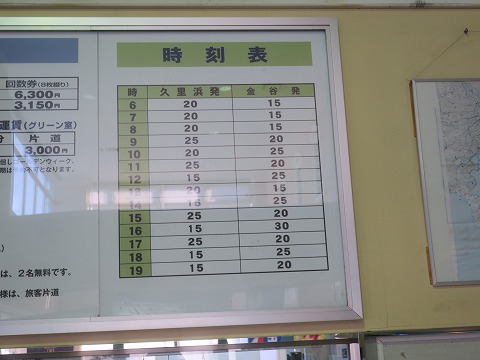 回数券(8枚綴り)
6,300円
3,150円
運賃(グリーン室)
分 片道
3,000円
は、2名無料です。
様は、旅客片道
時刻表
時 久里浜発 金谷発
6 20 15
7 20 15
8 20 15
9 25 20
10 20 25
11 25 20
12 15 25
13 20 15
14 15 25
15 25 20
16 15 30
17 25 20
18 15 25
19 15 20